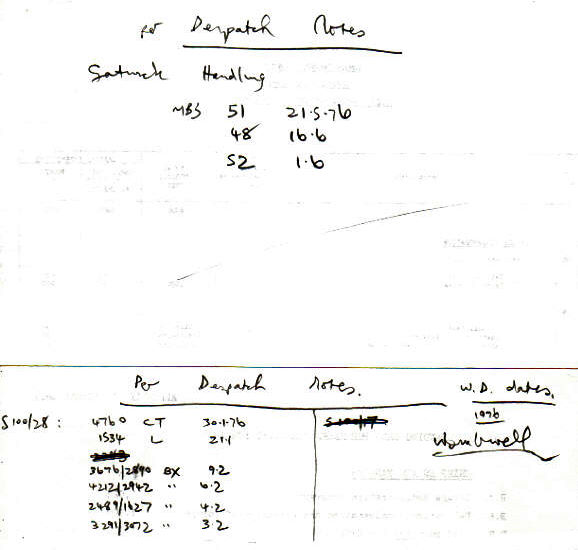 per Despatch Notes
Gatwick Handling
MBS 51 21.5.76
48 16.6
52 1.6
Per Despatch Notes. W.D. dates.
S100/28 : 4760 CT 30.1.76 1976
1534 L 21.1
3676/2890 BX 9.2
4212/2942 " 6.2
2489/1627 " 4.2
3291/3072 " 3.2